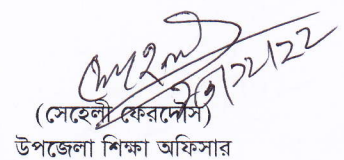 সেহেলী
(সেহেলী ফেরদৌস)
উপজেলা শিক্ষা অফিসার